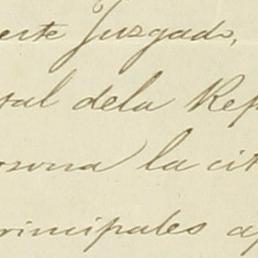 este Juzgado,
sal dela Rep
rsona la cit
rincipales ap